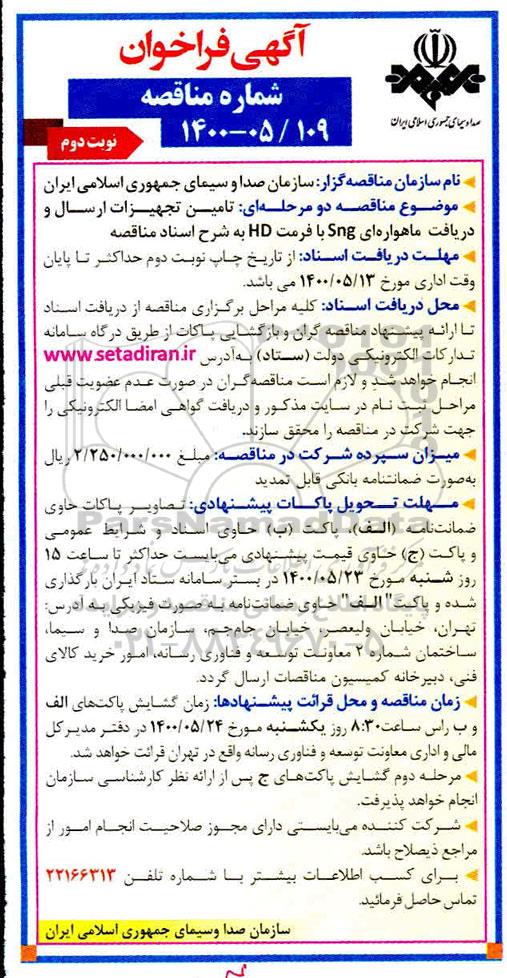 آگهی فراخوان
شماره مناقصه
۱۴۰۰-۰۵ / ۱۰۹
نوبت دوم
صدا و سیمای جمهوری اسلامی ایران
نام سازمان مناقصه‌گزار: سازمان صدا و سیمای جمهوری اسلامی ایران
موضوع مناقصه دو مرحله‌ای: تامین تجهیزات ارسال و
دریافت ماهواره‌ای Sng با فرمت HD به شرح اسناد مناقصه
مهلت دریافت اسناد: از تاریخ چاپ نوبت دوم حداکثر تا پایان
وقت اداری مورخ ۱۴۰۰/۰۵/۱۳ می باشد.
محل دریافت اسناد: کلیه مراحل برگزاری مناقصه از دریافت اسناد
تا ارائه پیشنهاد مناقصه گران و بازگشایی پاکات از طریق درگاه سامانه
تدارکات الکترونیکی دولت (ستاد) به‌آدرس www.setadiran.ir
انجام خواهد شد و لازم است مناقصه‌گران در صورت عدم عضویت قبلی
مراحل ثبت نام در سایت مذکور و دریافت گواهی امضا الکترونیکی را
جهت شرکت در مناقصه را محقق سازند.
میزان سپرده شرکت در مناقصه: مبلغ ۲/۲۵۰/۰۰۰/۰۰۰ ریال
به‌صورت ضمانتنامه بانکی قابل تمدید
مهلت تحویل پاکات پیشنهادی: تصاویر پاکات حاوی
ضمانتنامه (الف)، پاکت (ب) حاوی اسناد و شرایط عمومی
و پاکت (ج) حاوی قیمت پیشنهادی می‌بایست حداکثر تا ساعت ۱۵
روز شنبه مورخ ۱۴۰۰/۰۵/۲۳ در بستر سامانه ستاد ایران بارگذاری
شده و پاکت "الف" حاوی ضمانتنامه به صورت فیزیکی به آدرس:
تهران، خیابان ولیعصر، خیابان جام‌جم، سازمان صدا و سیما،
ساختمان شماره ۲ معاونت توسعه و فناوری رسانه، امور خرید کالای
فنی، دبیرخانه کمیسیون مناقصات ارسال گردد.
زمان مناقصه و محل قرائت پیشنهادها: زمان گشایش پاکت‌های الف
و ب راس ساعت ۸:۳۰ روز یکشنبه مورخ ۱۴۰۰/۰۵/۲۴ در دفتر مدیرکل
مالی و اداری معاونت توسعه و فناوری رسانه واقع در تهران قرائت خواهد شد.
مرحله دوم گشایش پاکت‌های ج پس از ارائه نظر کارشناسی سازمان
انجام خواهد پذیرفت.
شرکت کننده می‌بایستی دارای مجوز صلاحیت انجام امور از
مراجع ذیصلاح باشد.
برای کسب اطلاعات بیشتر با شماره تلفن ۲۲۱۶۶۳۱۳
تماس حاصل فرمائید.
سازمان صدا وسیمای جمهوری اسلامی ایران
ParsNamadData